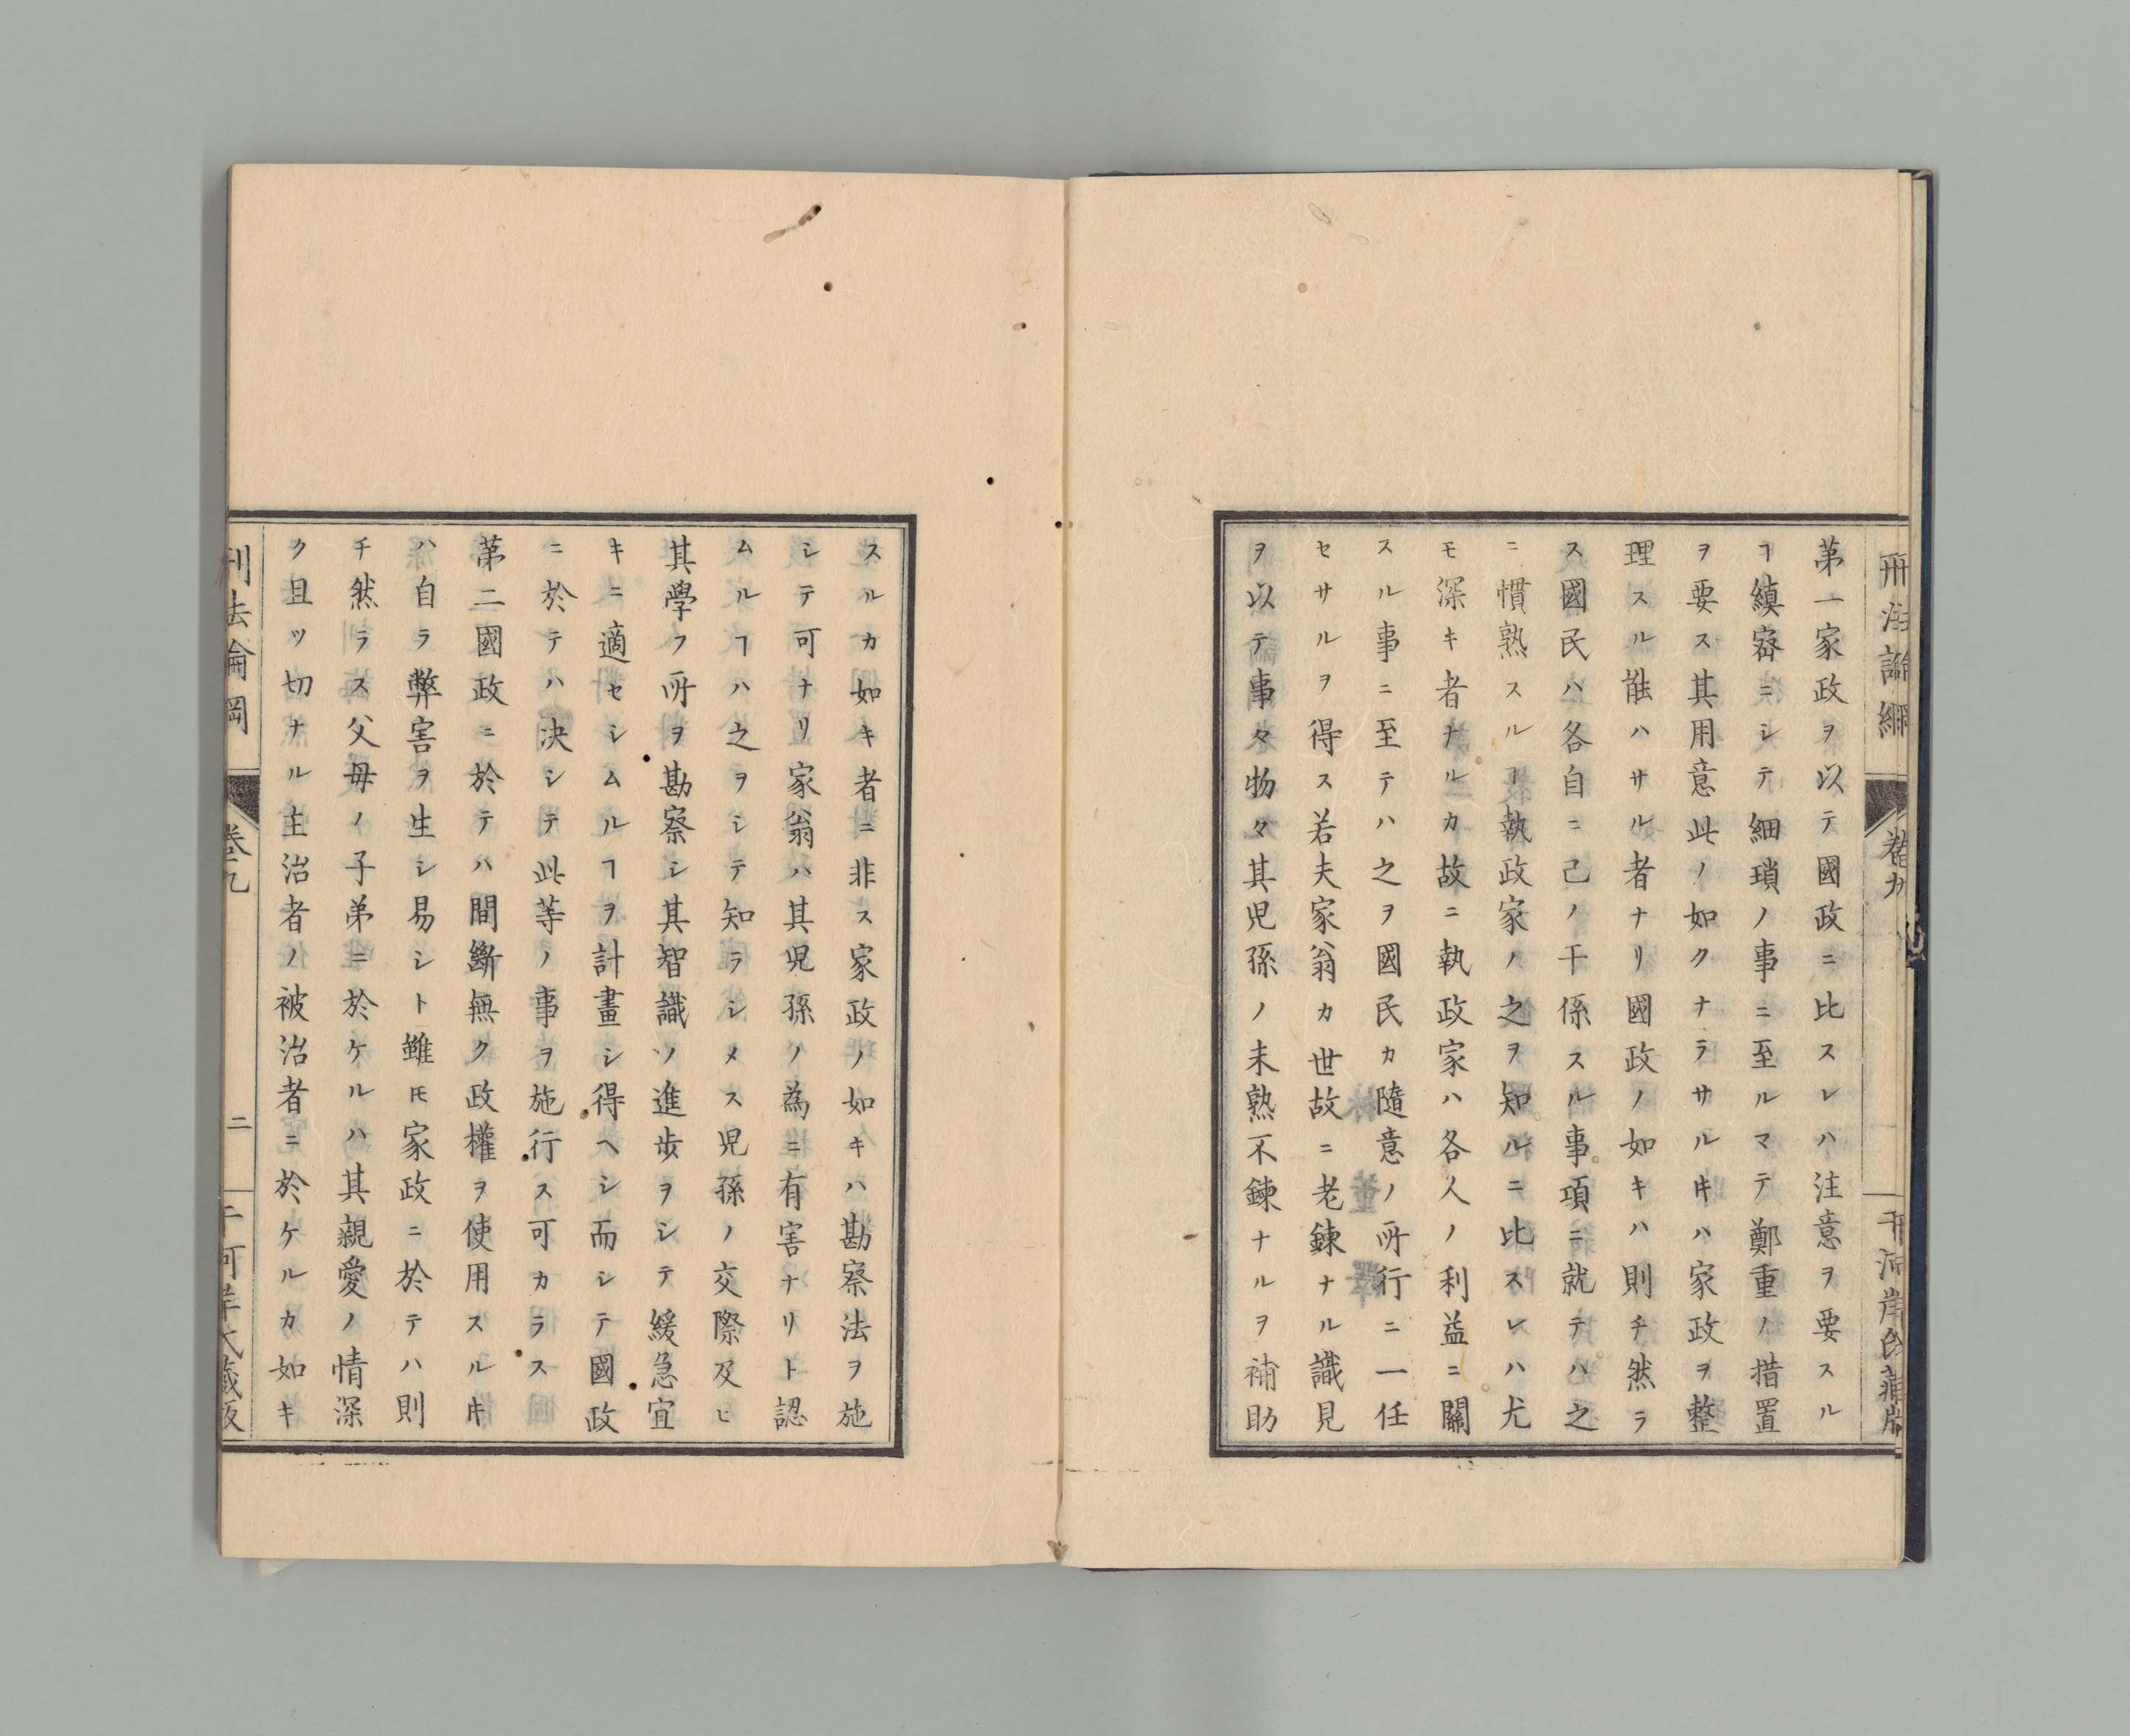 刑法論綱
卷九
第一家政ヲ以テ國政ニ比スレハ注意ヲ要スル
ヿ縝密ニシテ細瑣ノ事ニ至ルマテ鄭重ノ措置
ヲ要ス其用意此ノ如クナラサルキハ家政ヲ整
理スル能ハサル者ナリ國政ノ如キハ則チ然ラ
ス國民ハ各自ニ己ノ干係スル事項ニ就テハ之
ニ慣熟スルヿ執政家ノ之ヲ知ルニ比スレハ尤
モ深キ者ナルカ故ニ執政家ハ各人ノ利益ニ關
スル事ニ至テハ之ヲ國民カ隨意ノ所行ニ一任
セサルヲ得ス若夫家翁カ世故ニ老鍊ナル識見
ヲ以テ事々物々其児孫ノ未熟不鍊ナルヲ補助
スルカ如キ者ニ非ス家政ノ如キハ勘察法ヲ施
シテ可ナリ家翁ハ其児孫ノ為ニ有害ナリト認
ムルヿハ之ヲシテ知ラシメス児孫ノ交際及ヒ
其學フ所ヲ勘察シ其智識ノ進歩ヲシテ緩急宜
キニ適セシムルヿヲ計畫シ得ヘシ而シテ國政
ニ於テハ決シテ此等ノ事ヲ施行ス可カラス
第二國政ニ於テハ間斷無ク政權ヲ使用スルキ
ハ自ラ弊害ヲ生シ易シト雖𪜈家政ニ於テハ則
チ然ラス父母ノ子弟ニ於ケルハ其親愛ノ情深
ク且ツ切ナル主治者ノ被治者ニ於ケルカ如キ
刑法論綱
卷九
二